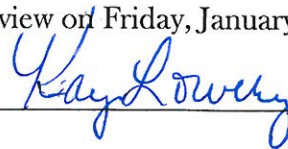 view on Friday, January
Kay Lowery